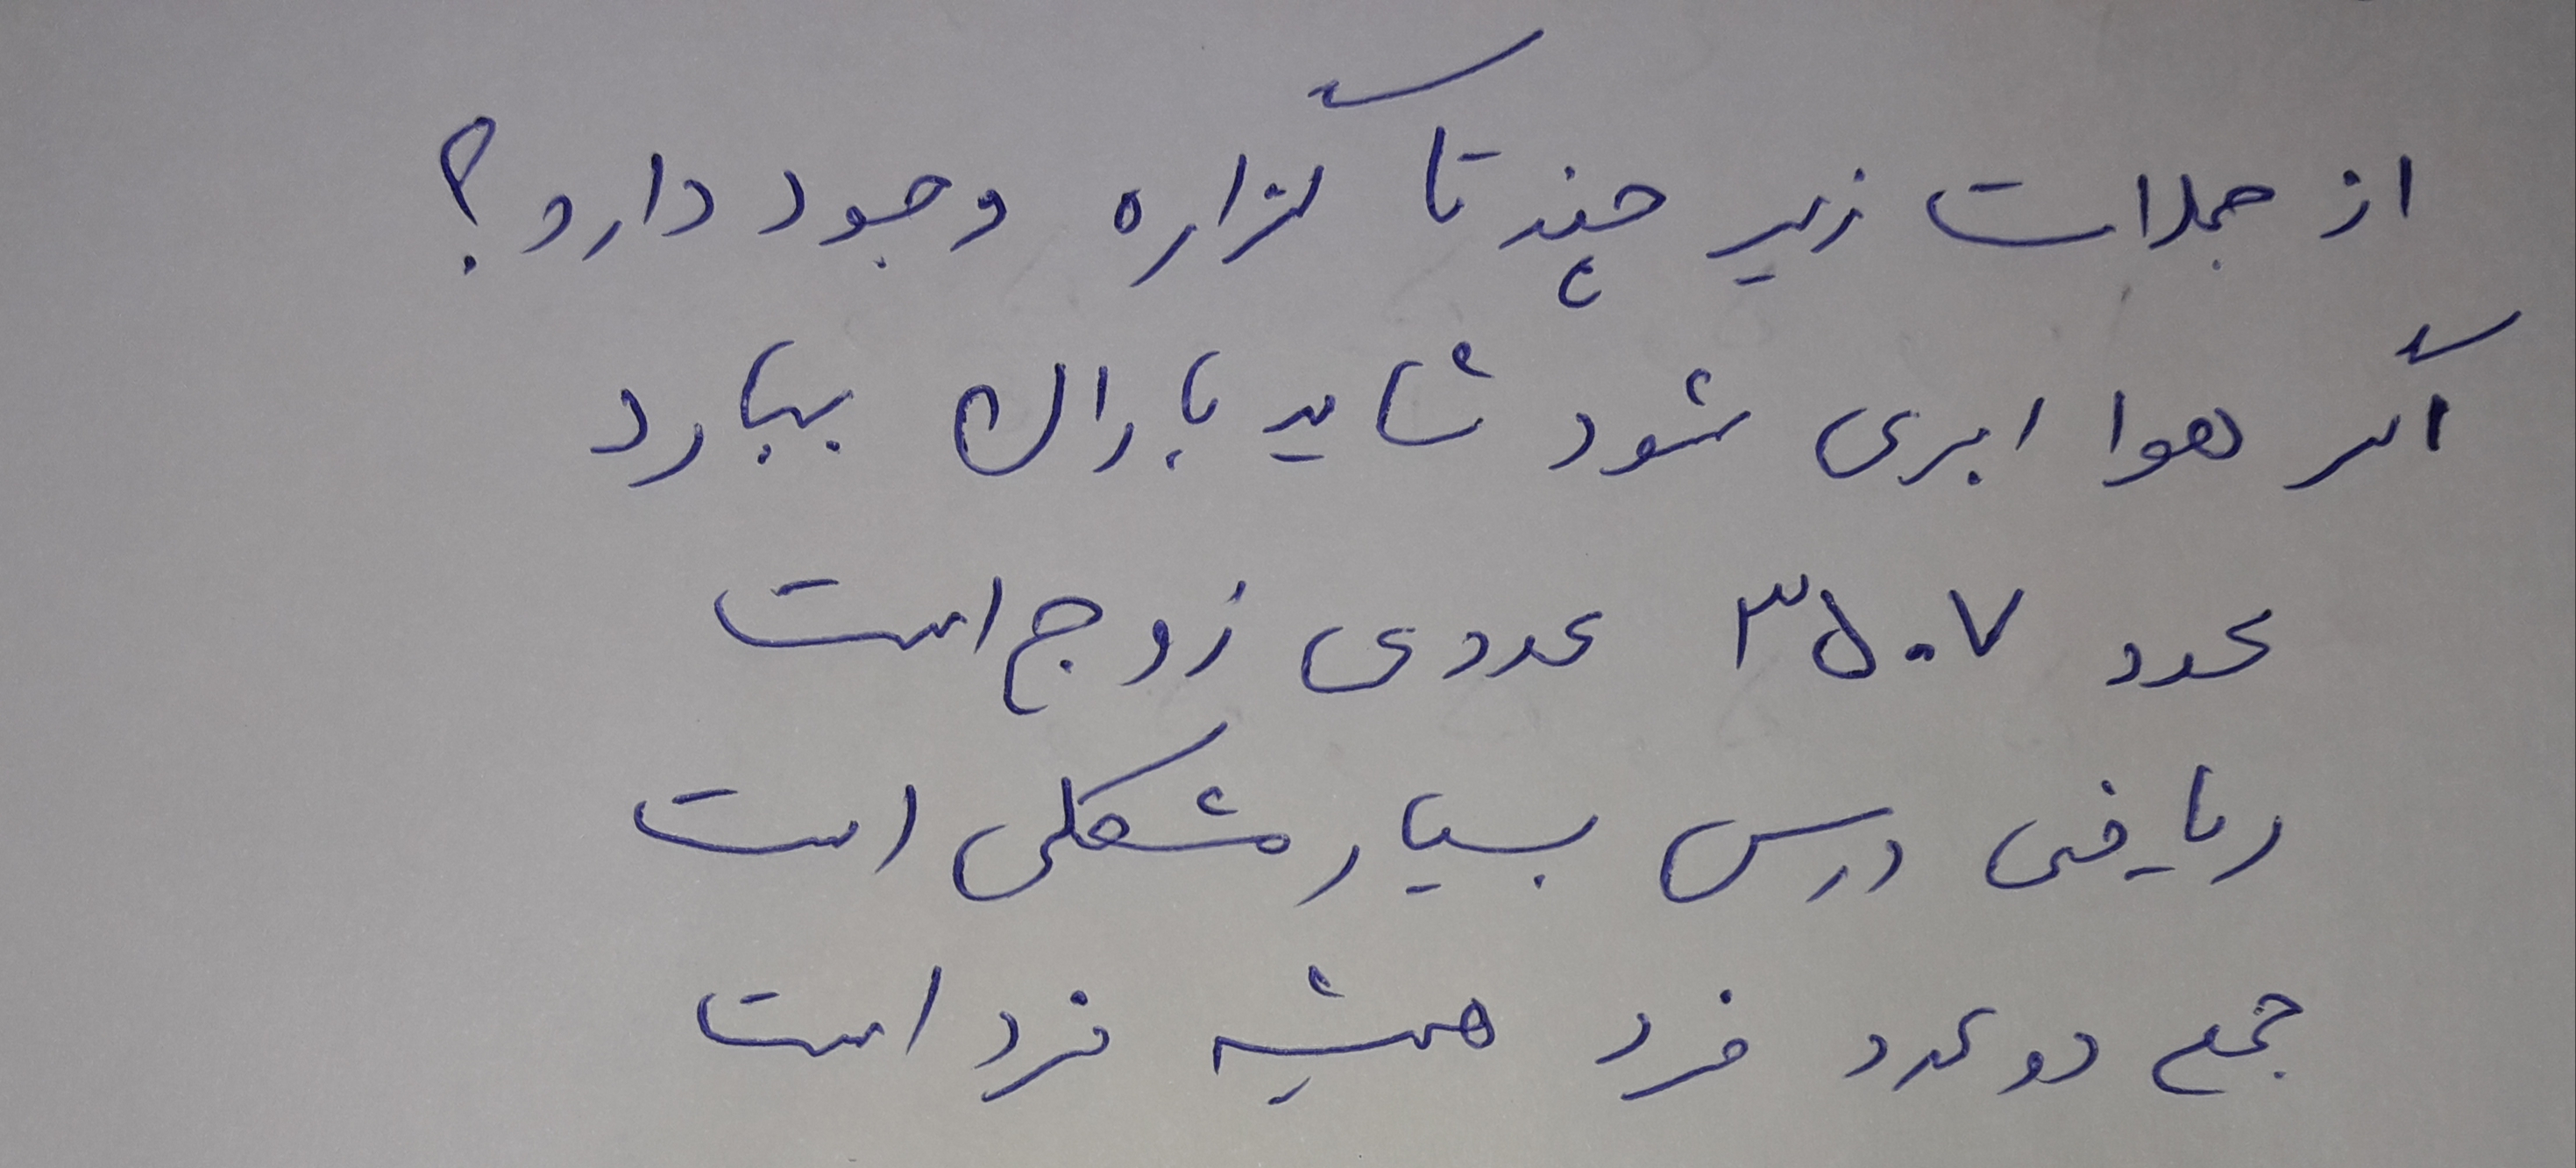 از جملات زیر چند تا گزاره وجود دارد؟
اگر هوا ابری شود شاید باران ببارد
عدد ۳۵۰۷ عددی زوج است
ریاضی درس بسیار مشکلی است
جمع دو عدد فرد همیشه فرد است